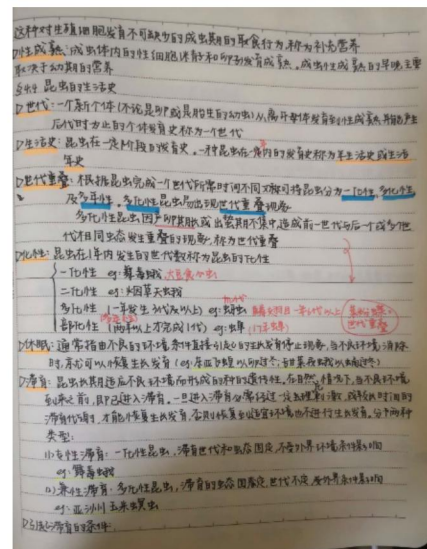 这种对生殖细胞发育不可缺少的成虫期的取食行为,称为补充营养
性成熟:成虫体内的性细胞(精子和卵子)发育成熟。成虫性成熟的早晚主要
取决于幼期的营养
昆虫的生活史
世代:一个新个体(不论是卵或是胎生的幼虫)从离开母体发育到性成熟并能产生
后代时为止的个体发育史称为一个世代
生活史:昆虫在一定阶段的发育史。一种昆虫在一年内的发育史称为年生活史或生活
年史
世代重叠:根据昆虫完成一个世代所需时间不同又称可将昆虫分为一化性,多化性
及多年性。多化性昆虫易出现世代重叠现象
多化性昆虫因产卵期长或出蛰期不集中,造成前一世代与后一个或多个世
代相同虫态发生重叠的现象,称为世代重叠
化性:昆虫在1年内发生的世代数称为昆虫的化性
一化性 eg:舞毒蛾 大豆食心虫
二化性 eg:烟草天虫蛾
多化性 (一年发生3代及以上) eg:蚜虫
部化性 (两年以上才完成1代) eg:蝉 (17年蝉)
世代重叠
休眠:通常指由不良的环境条件直接引起的生长发育停止现象,当不良环境消除
时,就可以恢复生长发育
滞育:昆虫长期适应不良环境而形成的种的遗传性。在自然情况下,当不良环境
到来之前,即已进入滞育。一旦进入滞育必需经过一定的理化刺激,或较长时间的
滞育代谢,才能恢复生长发育,否则恢复到适宜环境也不进行生长发育。分为两种
类型:
(1)专性滞育:一化性昆虫,滞育世代和虫态固定,不受外界环境条件影响
eg:舞毒蛾
(2)兼性滞育:多化性昆虫,滞育的虫态固定,世代不定,受外界条件影响
eg:亚洲玉米螟虫
引起滞育的条件